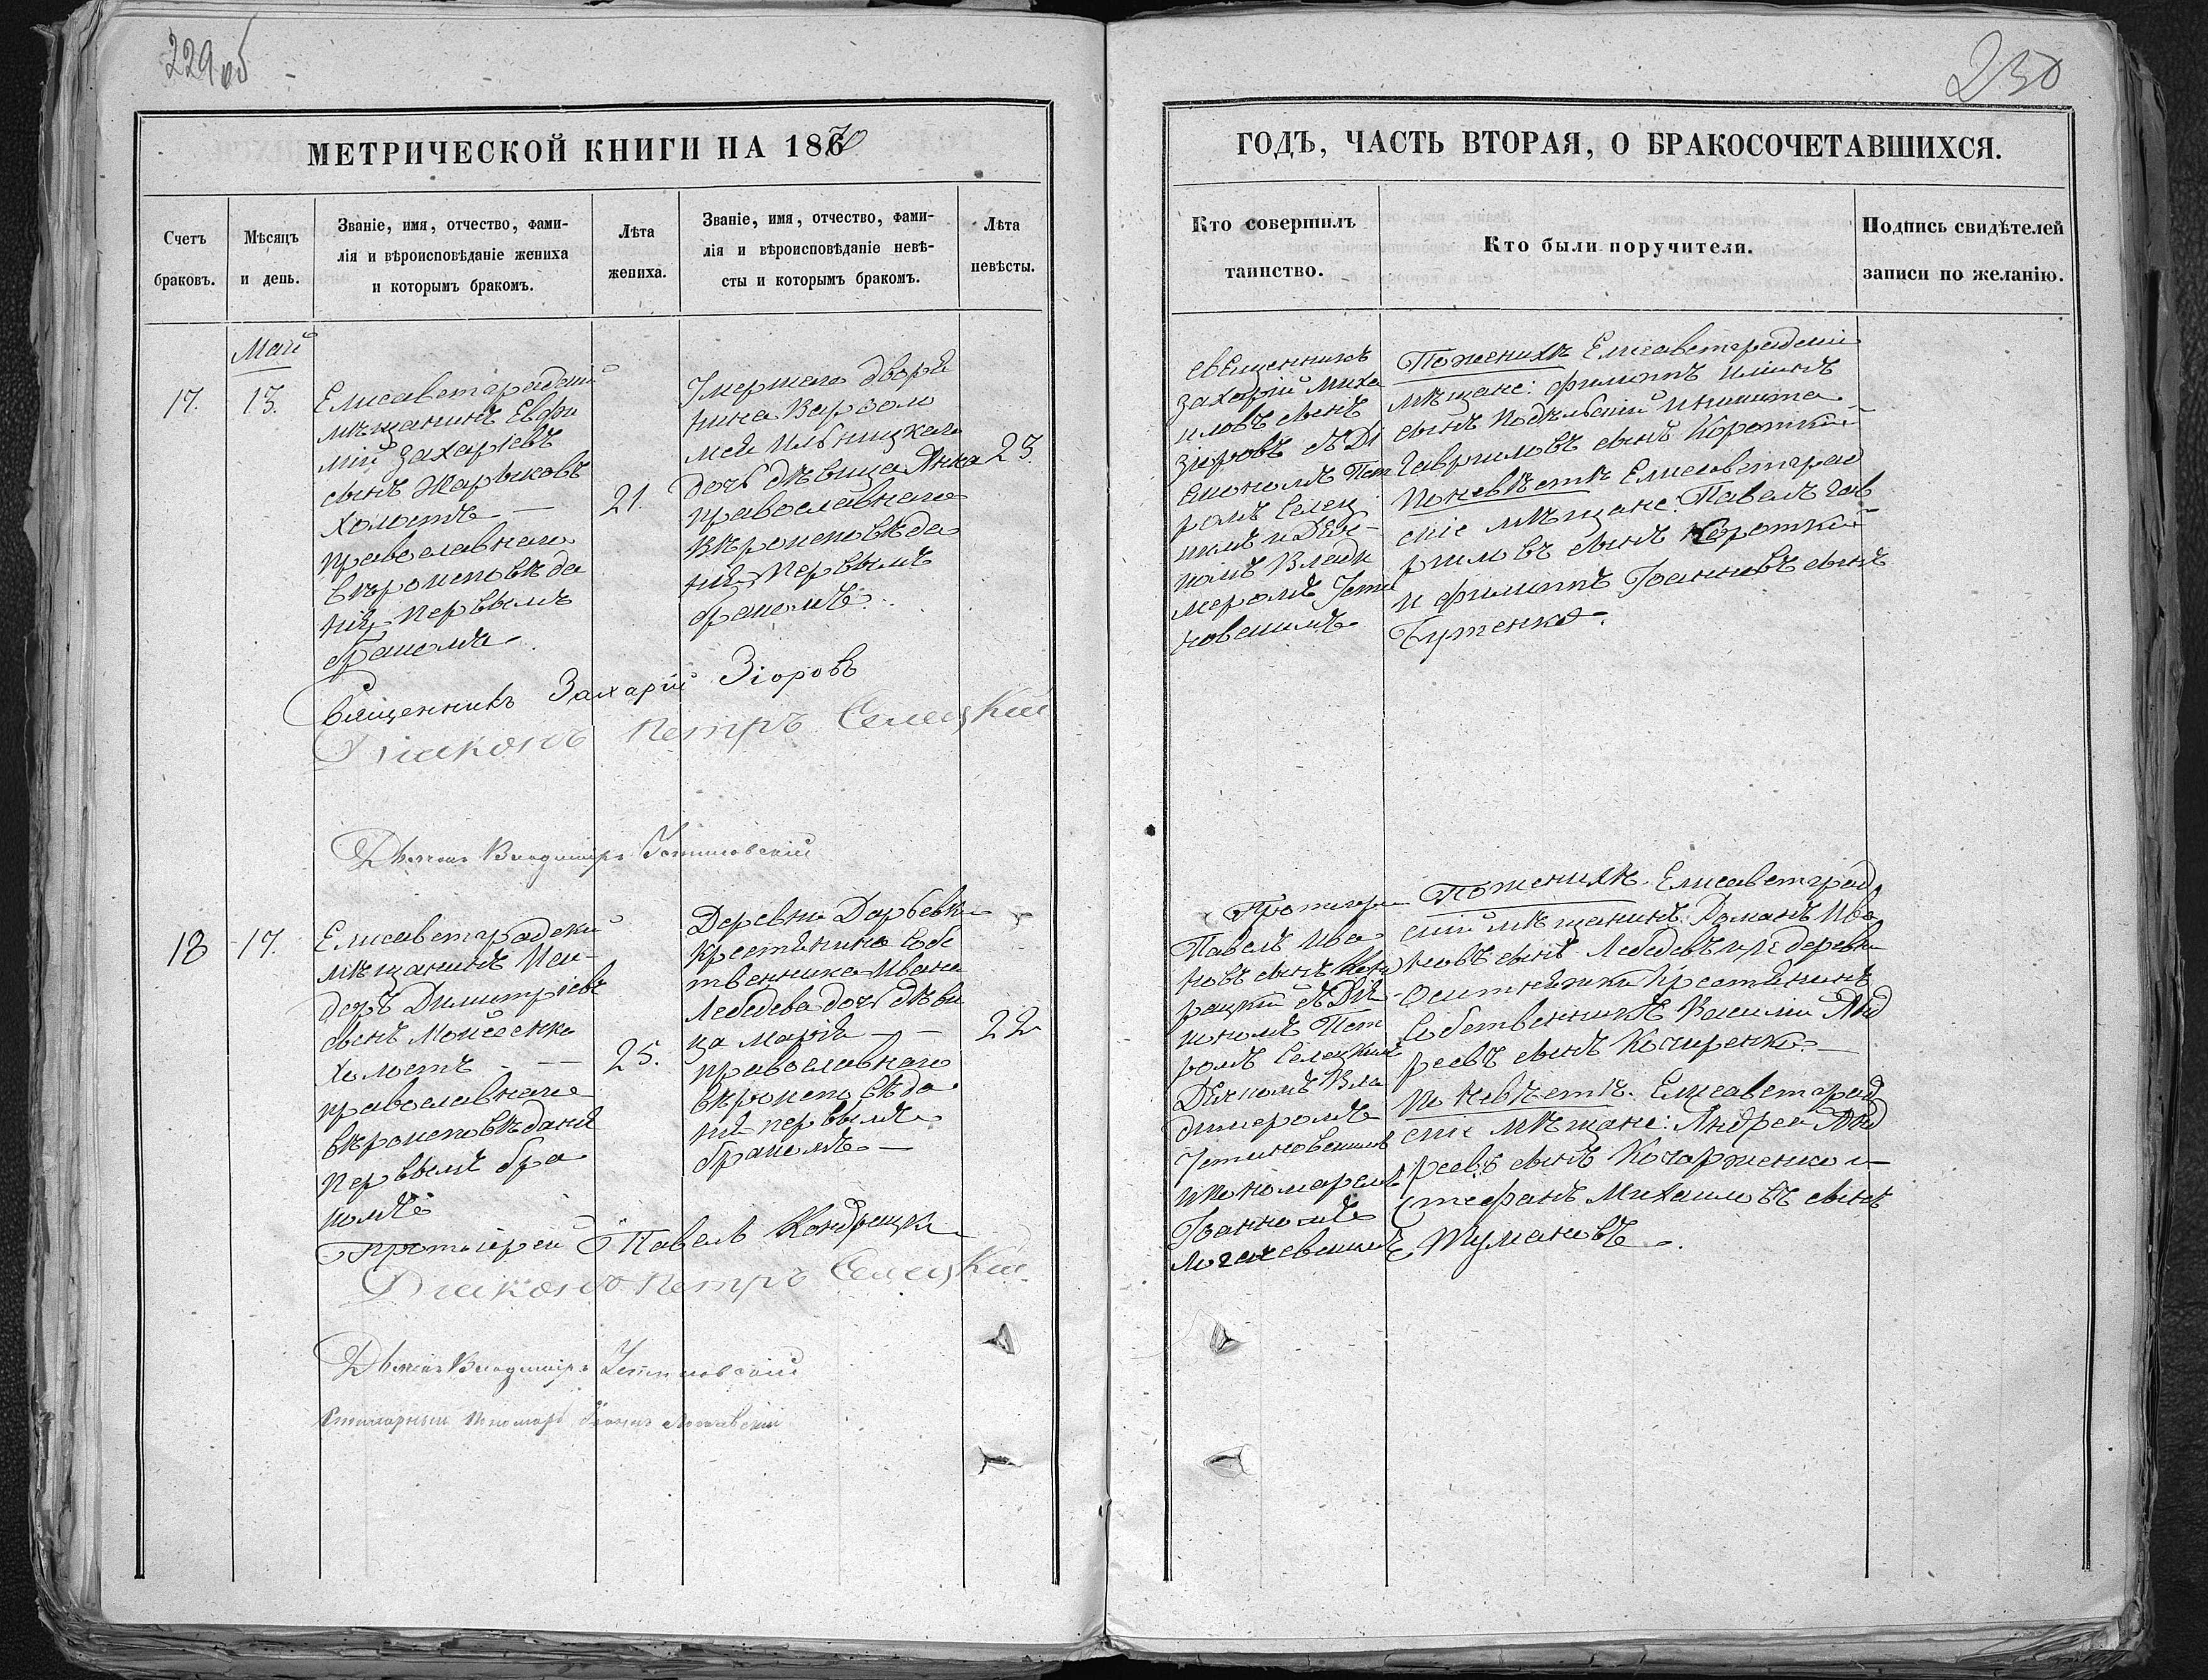 229 об
МЕТРИЧЕСКОЙ КНИГИ НА 1870
Счетъ браковъ.
Мѣсяцъ и день.
Званіе, имя, отчество, фами-
лія и вѣроисповѣданіе жениха
и которымъ бракомъ.
Лѣта
жениха.
Званіе, имя, отчество, фами-
лія и вѣроисповѣданіе невѣ-
сты и которымъ бракомъ.
Лѣта
невѣсты.
Май
17.
13.
Елисаветградскій
мѣщанинъ Евфи
мій Захаріевъ
сынъ Жариковъ
холостъ —
православнаго
вѣроисповѣда
нія первымъ
бракомъ
21.
Умершаго дворя
нина Варѳоло
мея Ильницкаго
дочь дѣвица Анна
православнаго
вѣроисповѣда
нія первымъ
бракомъ.
23.
Священникъ Захарій Зіоровъ
Діаконъ Петръ Селецкій
Дьячекъ Владиміръ Устиновскій
18
17.
Елисаветградскій
мѣщанинъ Иси-
доръ Димитріевъ
сынъ Мойсеенко
холостъ — —
православнаго
вѣроисповѣданія
первымъ бра
комъ
25.
Деревни
крестьянина собс
твенника Ивана
Лебедева дочь дѣви
ца Марія — —
православнаго
вѣроисповѣда
нія первымъ
бракомъ —
22
Протоіерей Павелъ
Діаконъ Петръ Селецкій
Дьячекъ Владиміръ Устиновскій
пономарь Іоаннъ
230
ГОДЪ, ЧАСТЬ ВТОРАЯ, О БРАКОСОЧЕТАВШИХСЯ.
Кто совершилъ
таинство.
Кто были поручители.
Подпись свидѣтелей
записи по желанію.
священникъ
Захарій Миха
иловъ сынъ
Зіоровъ съ Ді
акономъ Пет
ромъ Селец
кимъ и Дьяч
комъ Влади
меромъ Усти
новскимъ
По женихѣ Елисаветградскіи
мѣщане: Филиппъ
сынъ Подѣльскій и Никита
Гавриловъ сынъ Короткій
По невѣстѣ Елисаветград
скіе мѣщане: Павелъ Гав
риловъ сынъ Короткій
и Филиппъ Іоанновъ сынъ
Бутенко.
Протоіерей
Павелъ Ива
новъ сынъ
съ Діа
кономъ Пет
ромъ Селецкимъ
Дьячкомъ Вла
димеромъ
Устиновскимъ
и пономаремъ
Іоанномъ
По женихѣ. Елисаветград
скій мѣщанинъ: Романъ Ива
новъ сынъ Лебедевъ и деревни
крестьянинъ
собственникъ Василій Анд
реевъ сынъ —
По невѣстѣ. Елисаветград
скіе мѣщане: Андрей Анд
реевъ сынъ и
Стефанъ Михаиловъ сынъ
Тумановъ.